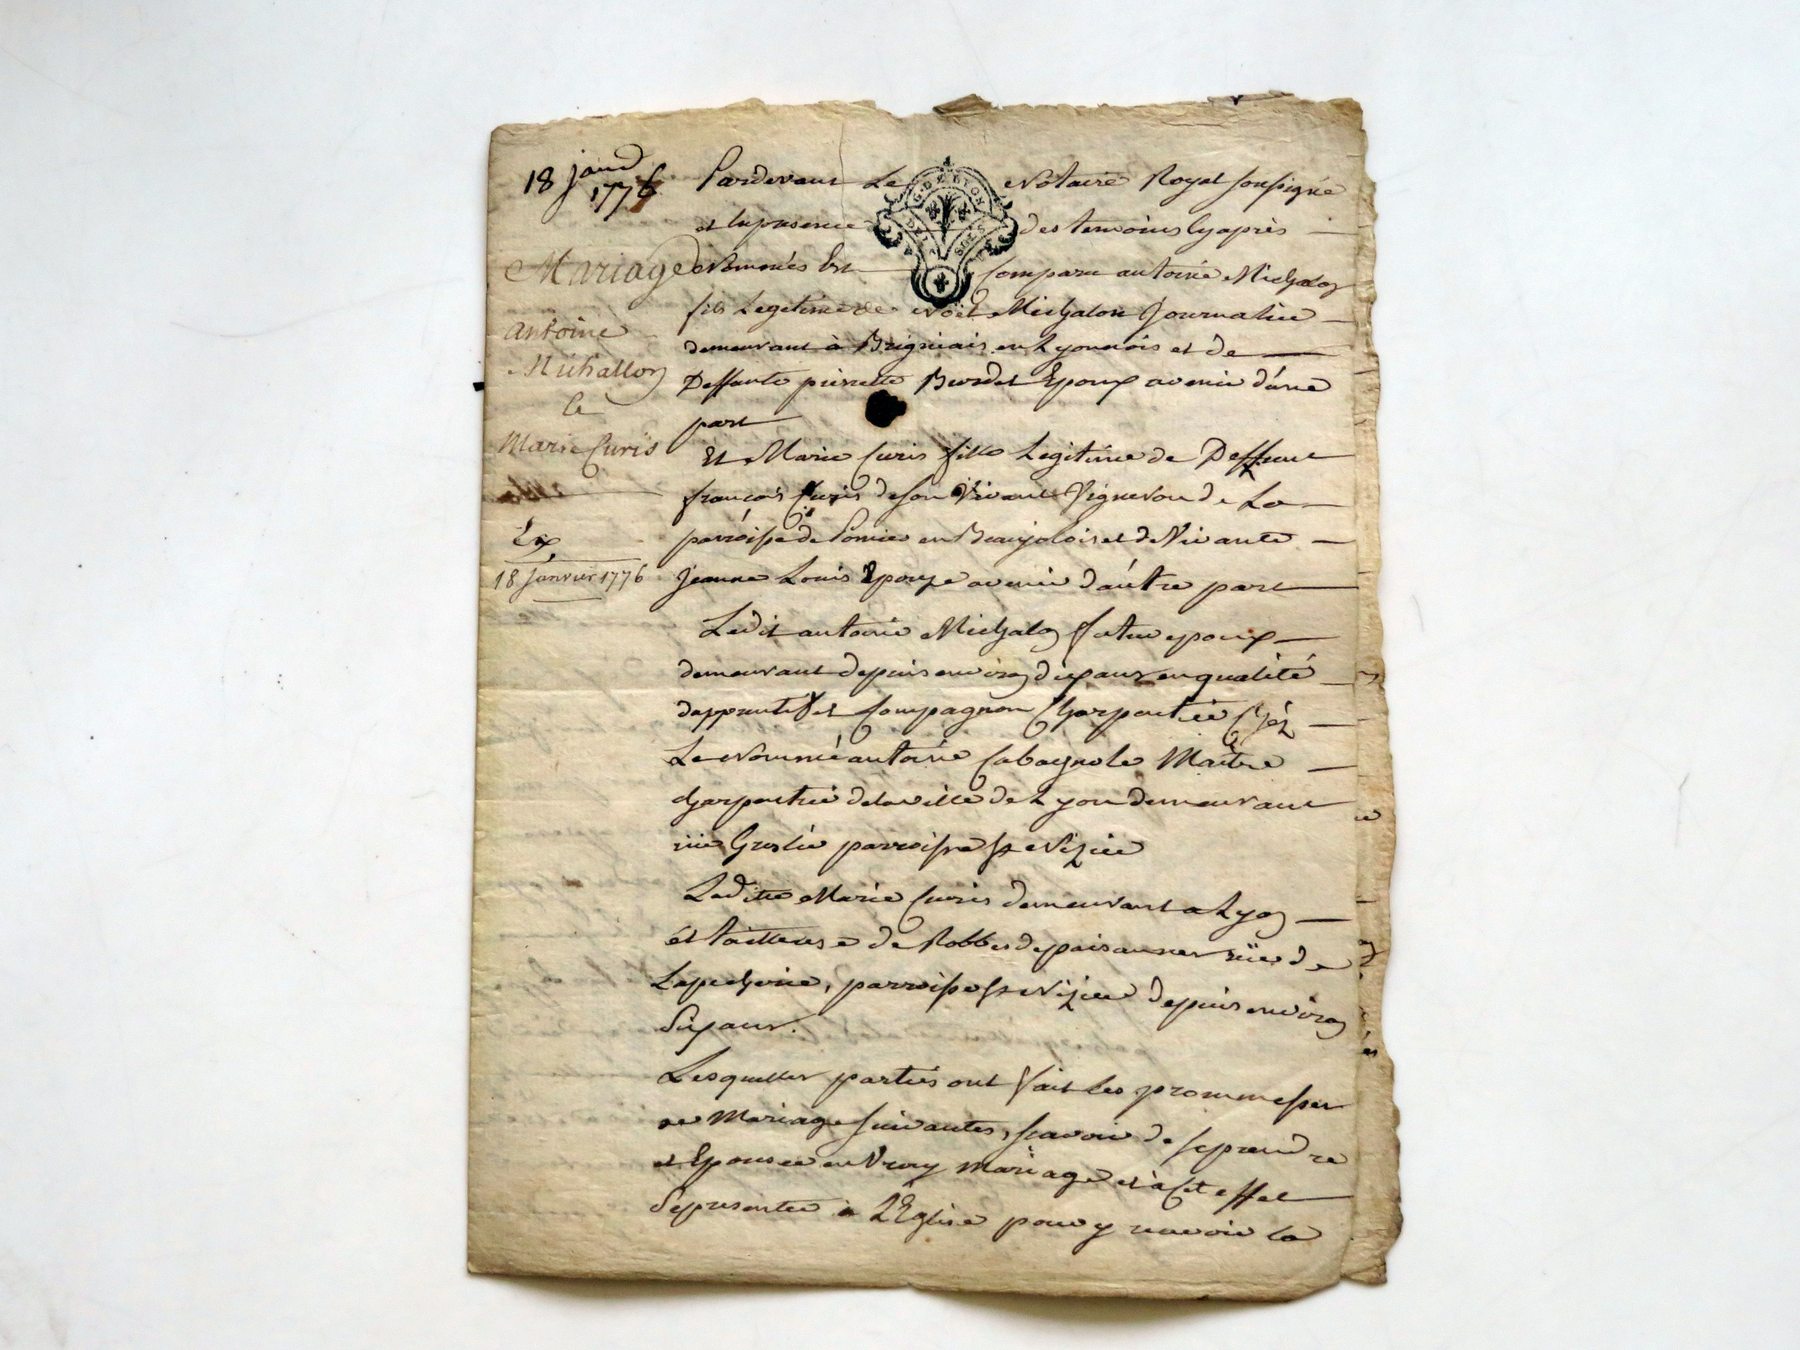 18 janv
1776
Mariage
antoine
Michallon
&
Marie Curis
Ex
18 Janvier 1776
G. DE LYON
DEUX SOLS
Pardevant Le Notaire Royal soussigné
et en presence des temoins cy après
Nommés Est Comparu antoine Michalon
fils Legitime de Noël Michalon Journalier
demeurant à Brignais en Lyonnois et de
Deffunte pierrette Burdet Epoux avenir d'une
part
Et Marie Curis fille Legitime de Deffunt
françois Curis de son Vivant Vigneron de La
parroisse de en Beaujolois et de Vivante
Jeanne Louis Epouse avenir d'autre part
Ledit antoine Michalon futur epoux
demeurant depuis environ dix ans en qualité
dapprentif et Compagnon Charpentier Chéz
Le Nommé antoine Cabagnole Maître
charpentier de la ville de Lyon demeurant
rüe Grolée parroisse St Nizier
Laditte Marie Curis demeurant a Lyon
et tailleuse de Robbes de paisannes rüe de
Lapecherie, parroisse St Nizier depuis environ
Six ans.
Lesquelles parties ont fait les prommesses
de Mariage suivantes, scavoir de se prendre
et Epouser en Vray mariage et à Cet effet
Se presenter à L'Eglise pour y recevoir la